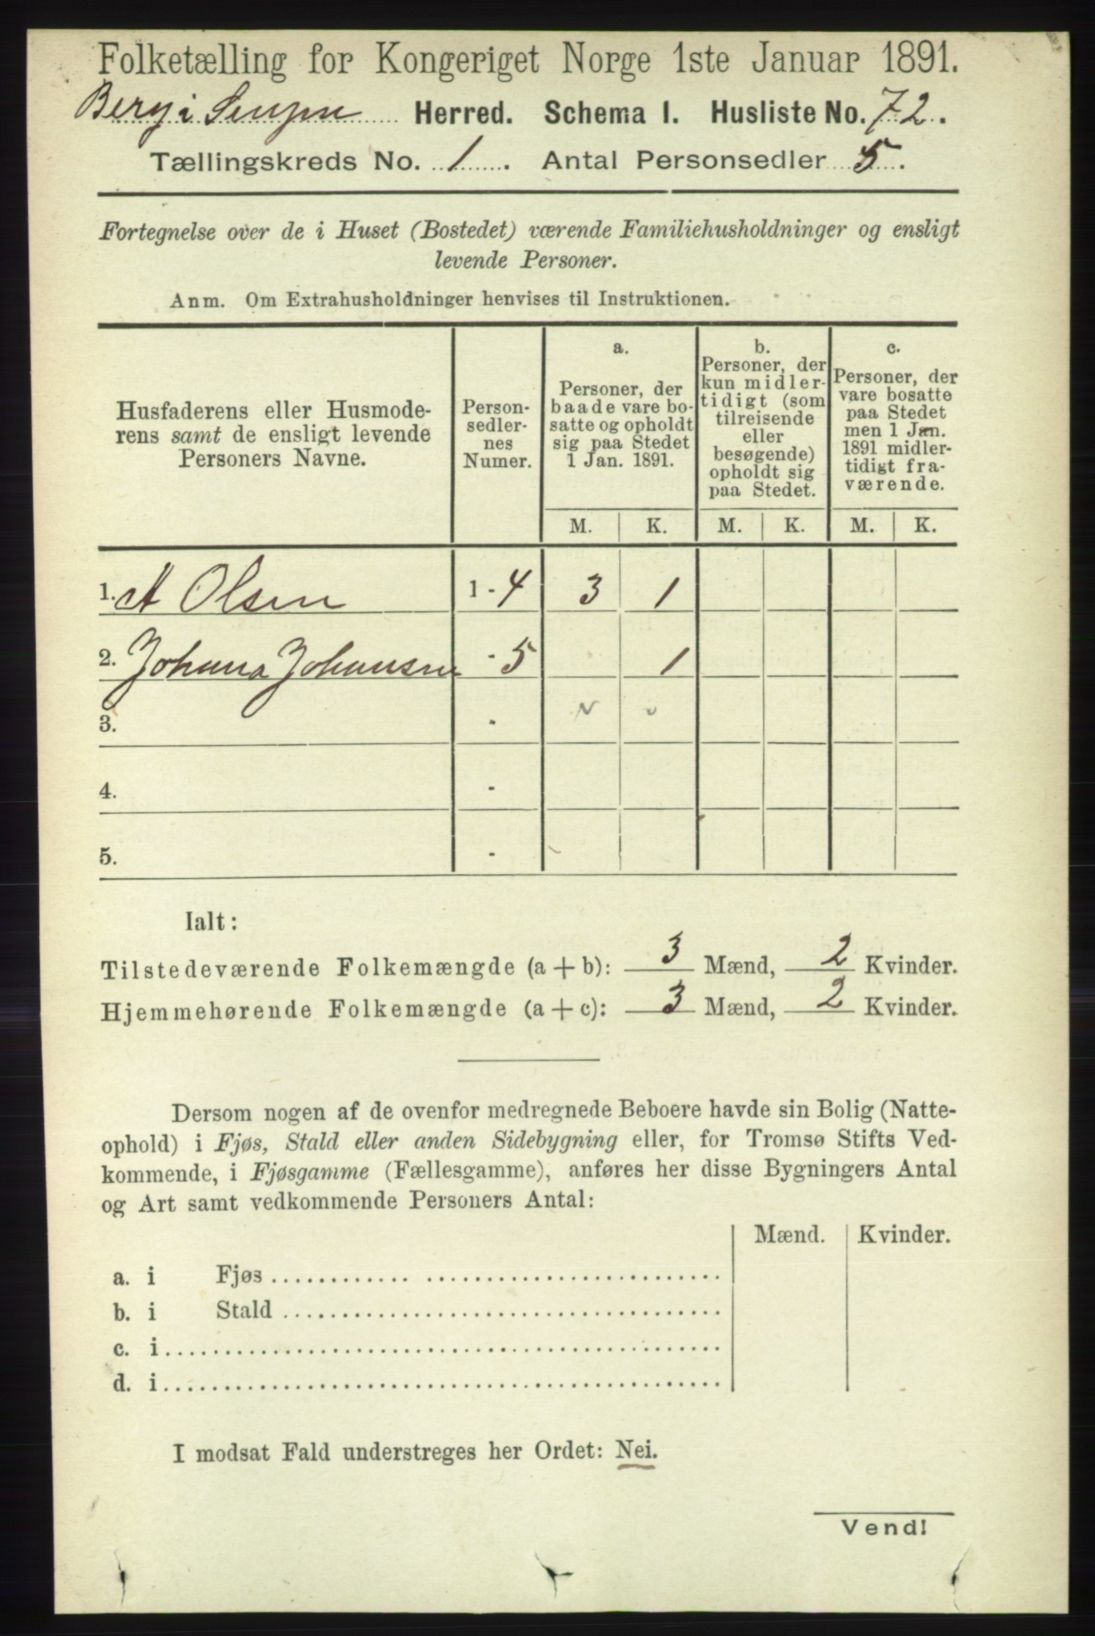 Folketælling for Kongeriget Norge 1ste Januar 1891.
Berg i Senjen Herred. Schema I. Husliste No. 72.
Tællingskreds No. 1. Antal Personsedler 5.
Fortegnelse over de i Huset (Bostedet) værende Familiehusholdninger og ensligt
levende Personer.
Anm. Om Extrahusholdninger henvises til Instruktionen.
Husfaderens eller Husmode-
rens samt de ensligt levende
Personers Navne.
Person-
sedler-
nes
Numer.
a.
Personer, der
baade vare bo-
satte og opholdt
sig paa Stedet
1 Jan. 1891.
b.
Personer, der
kun midler-
tidigt (som
tilreisende
eller
besøgende)
opholdt sig
paa Stedet.
c.
Personer, der
vare bosatte
paa Stedet
men 1 Jan.
1891 midler-
tidigt fra-
værende.
M. K. M. K. M. K.
1. A Olsen 1-4 3 1
2. Johana Johansen -5 1
3. -
4. -
5. -
Ialt:
Tilstedeværende Folkemængde (a + b): 3 Mænd, 2 Kvinder.
Hjemmehørende Folkemængde (a + c): 3 Mænd, 2 Kvinder.
Dersom nogen af de ovenfor medregnede Beboere havde sin Bolig (Natte-
ophold) i Fjøs, Stald eller anden Sidebygning eller, for Tromsø Stifts Ved-
kommende, i Fjøsgamme (Fællesgamme), anføres her disse Bygningers Antal
og Art samt vedkommende Personers Antal:
Mænd. Kvinder.
a. i Fjøs
b. i Stald
c. i
d. i
I modsat Fald understreges her Ordet: Nei.
Vend!